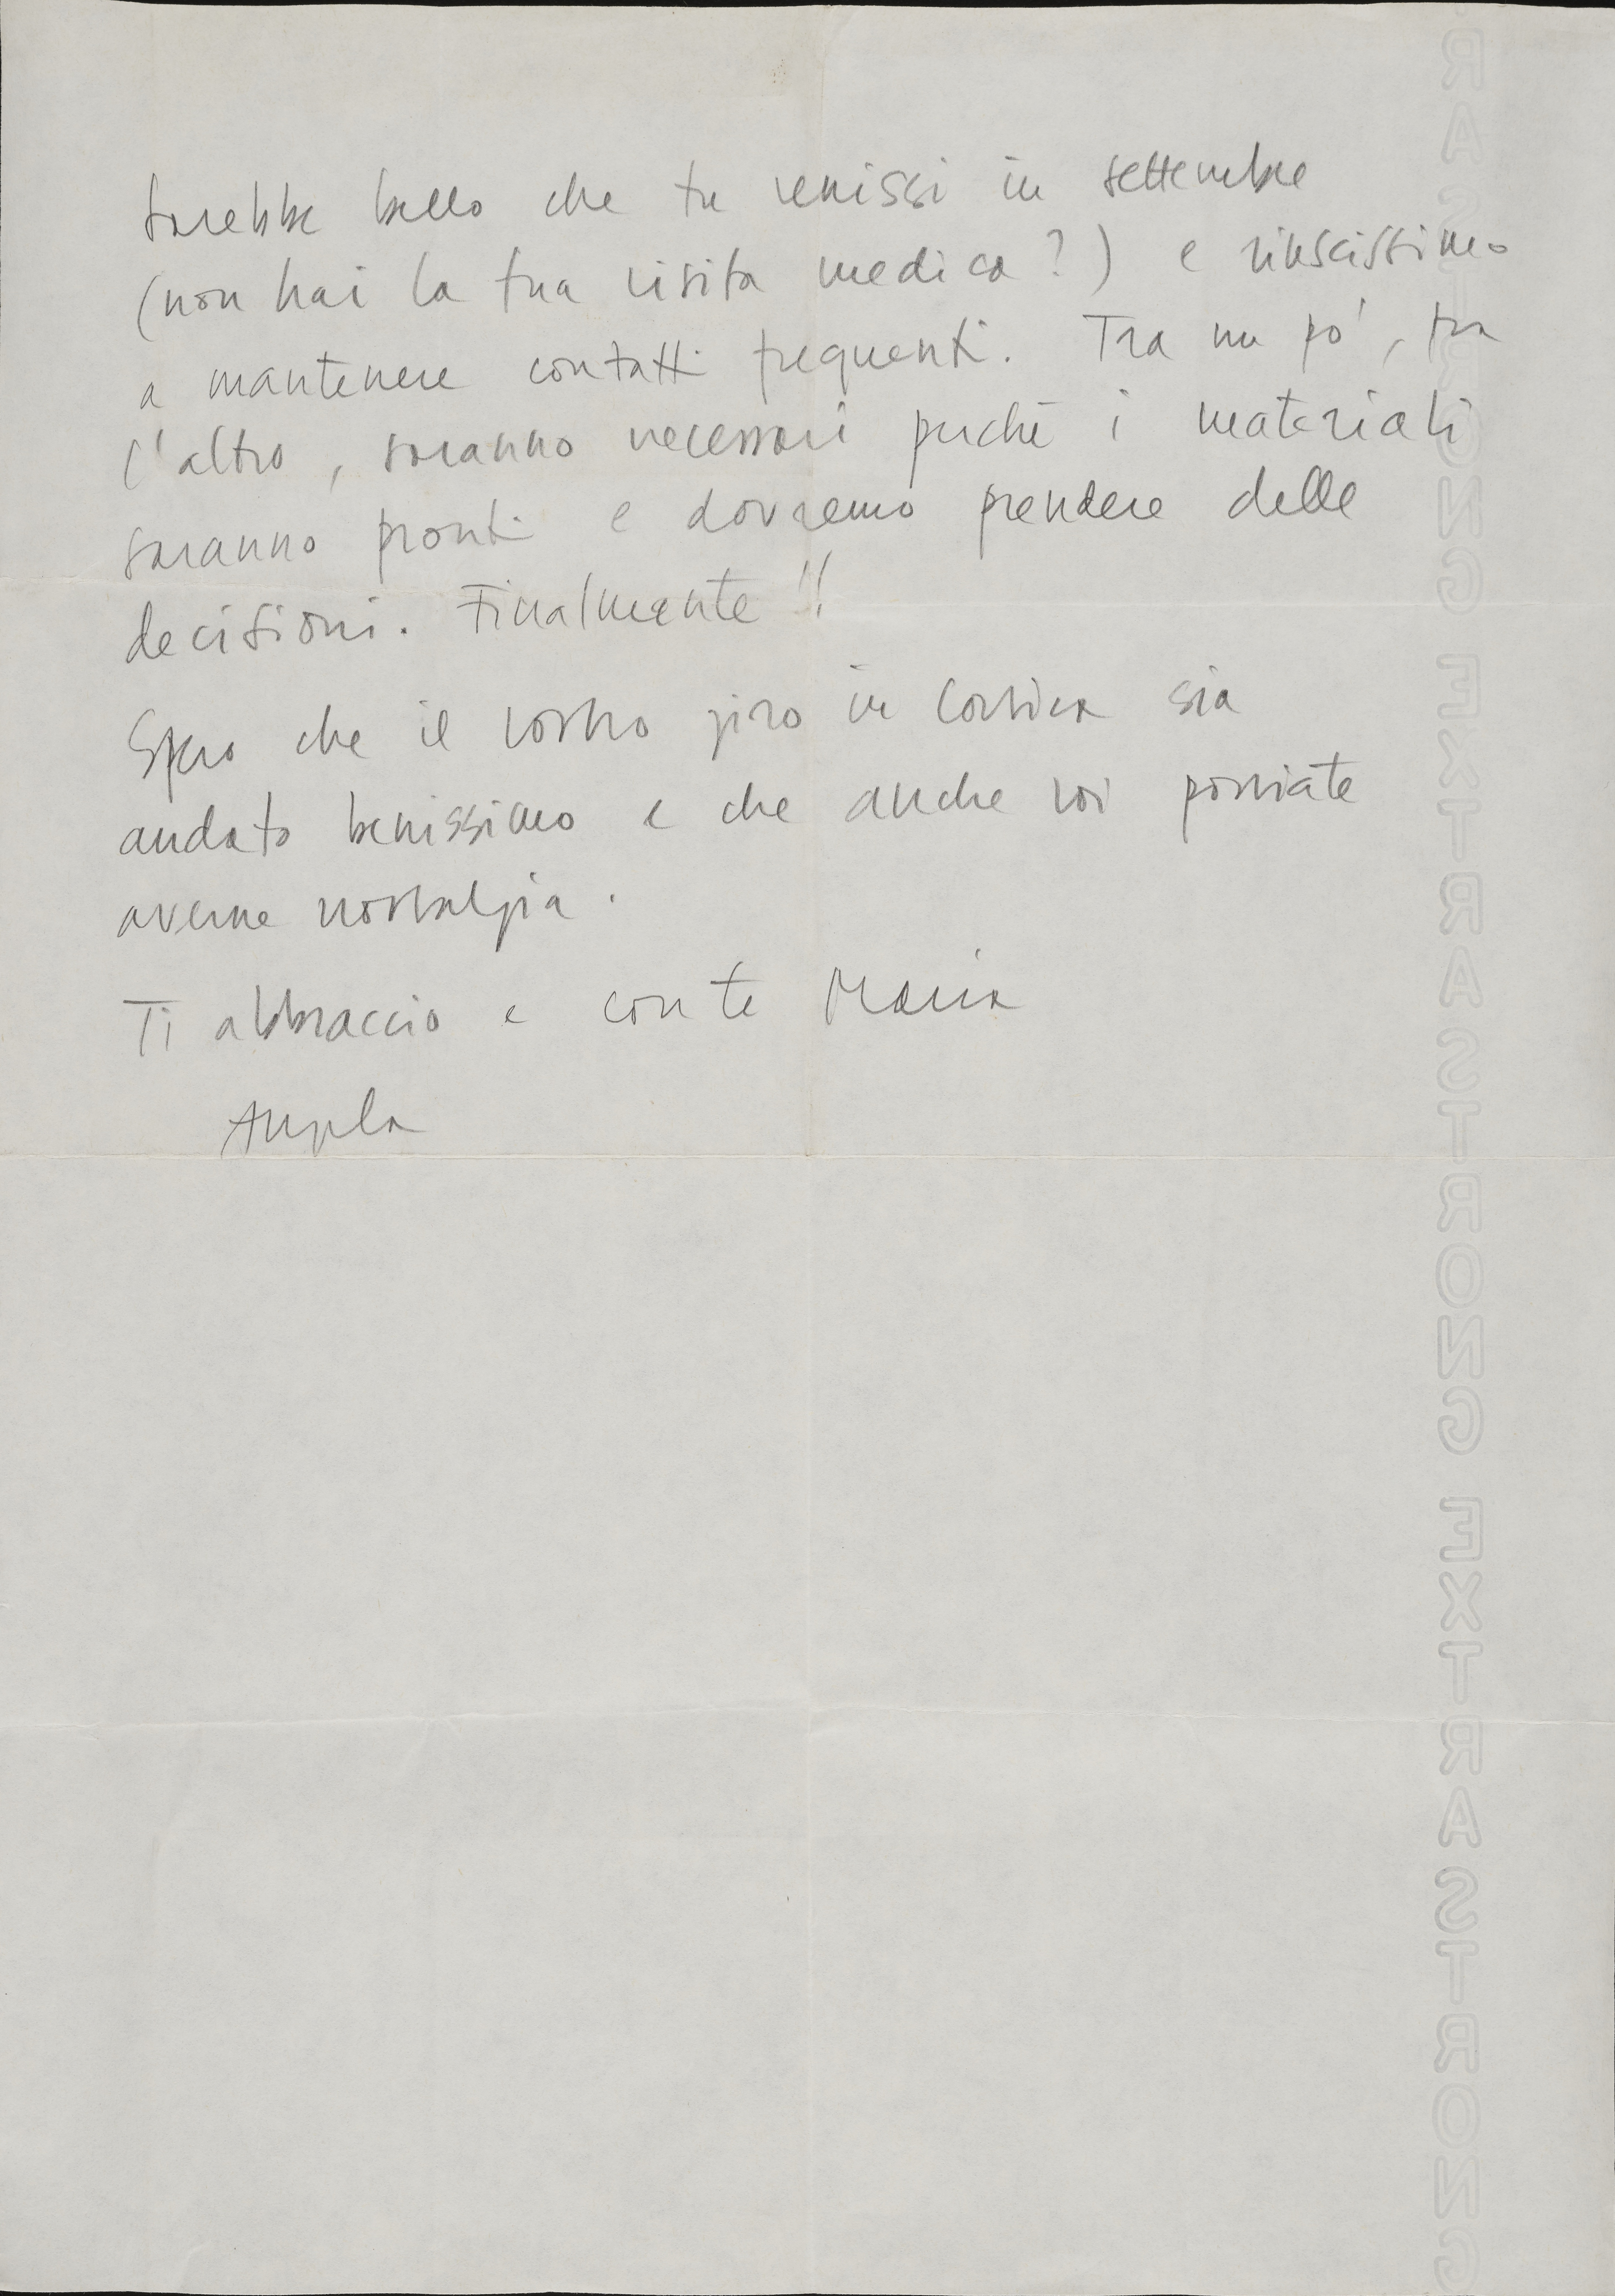 sarebbe bello che tu venissi in settembre
(non hai la tua visita medica?) e riuscissimo
a mantenere contatti frequenti. Tra un po', tra
l'altro, saranno necessari perché i materiali
saranno pronti e dovremo prendere delle
decisioni. Finalmente!!
Spero che il vostro giro in Corsica sia
andato benissimo e che anche voi possiate
averne nostalgia.
Ti abbraccio e con te Maria
Angela
EXTRA STRONG EXTRA STRONG EXTRA STRONG